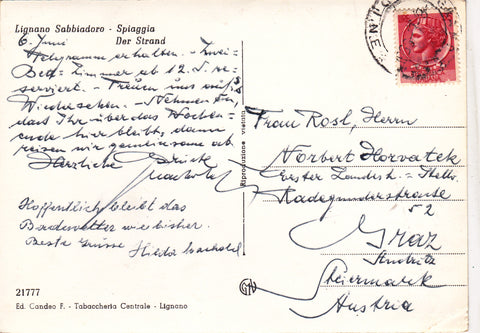 Lignano Sabbiadoro - Spiaggia
Der Strand
6. Juni
Telegramm erhalten. - Zwei-
Bed-Zimmer ab 12. d. re-
serviert. - Freuen uns auf's
Wiedersehen. - Nehmen an,
dass Ihr über das Wochen-
ende hier bleibt, dann
reisen wir gemeinsam ab.
Herzliche
Hoffentlich bleibt das
Badewetter wie bisher.
Beste Grüsse
21777
Ed. Candeo F. - Tabaccheria Centrale - Lignano
Riproduzione vietata
Frau Rosl, Herrn
Norbert Horvatek
Erster Landesh. = Stellv.
Radegunderstrasse
52
Graz
Andritz
Steiermark
Austria